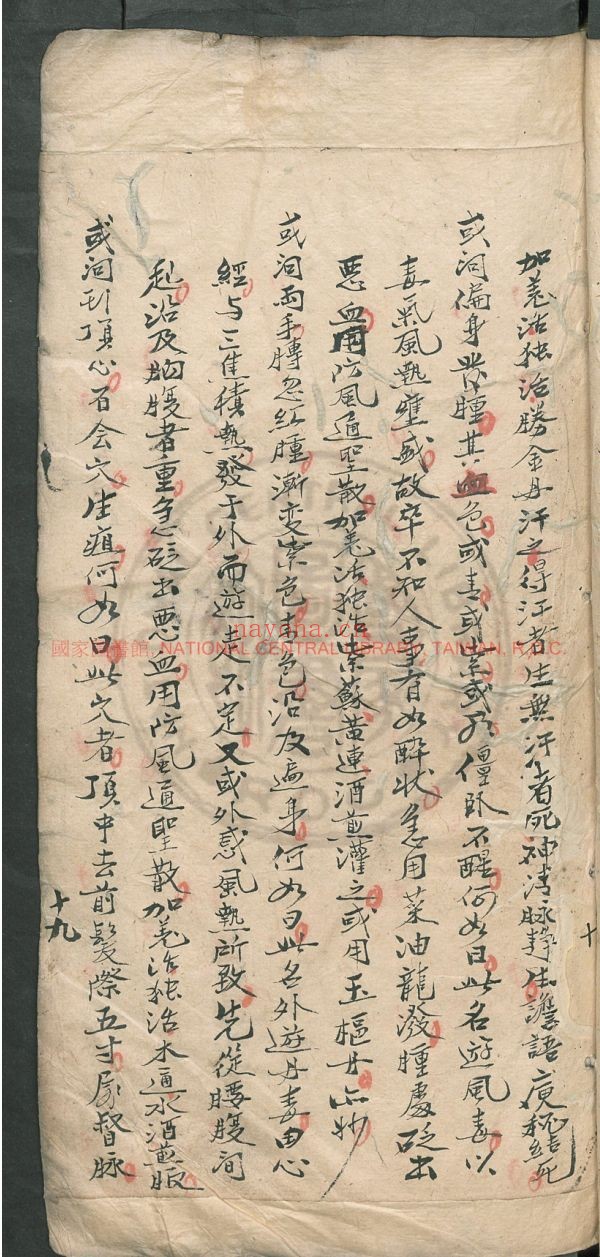 加羌活独活勝金丹汗之得汗者生無汗者死神清脉靜生譫語痰秘結死
或问偏身發腫其血色或青或紫或紅僵卧不醒何如曰此名遊風毒以
毒氣風熱壅盛故卒不知人事有如醉状急用菜油龍潑腫處砭出
悪血用防風通聖散加羌活独活紫蘇黄連酒煎灌之或用玉樞丹亦妙
或问両手膊忽紅腫漸变紫色青色沿及遍身何如曰此名外遊丹毒由心
經与三焦積熱發于外而遊走不定又或外感風熱所致先從腰腹间
起沿及胸腹者重急砭出悪血用防風通聖散加羌活独活木通水酒煎服
或问刮頂心百会穴生疽何如曰此穴者頂中去前髪際五寸属督脉
十九
十
nayana.c
國家圖書館 NATIONAL CENTRAL LIBRARY, TAIWAN, R.O.C.